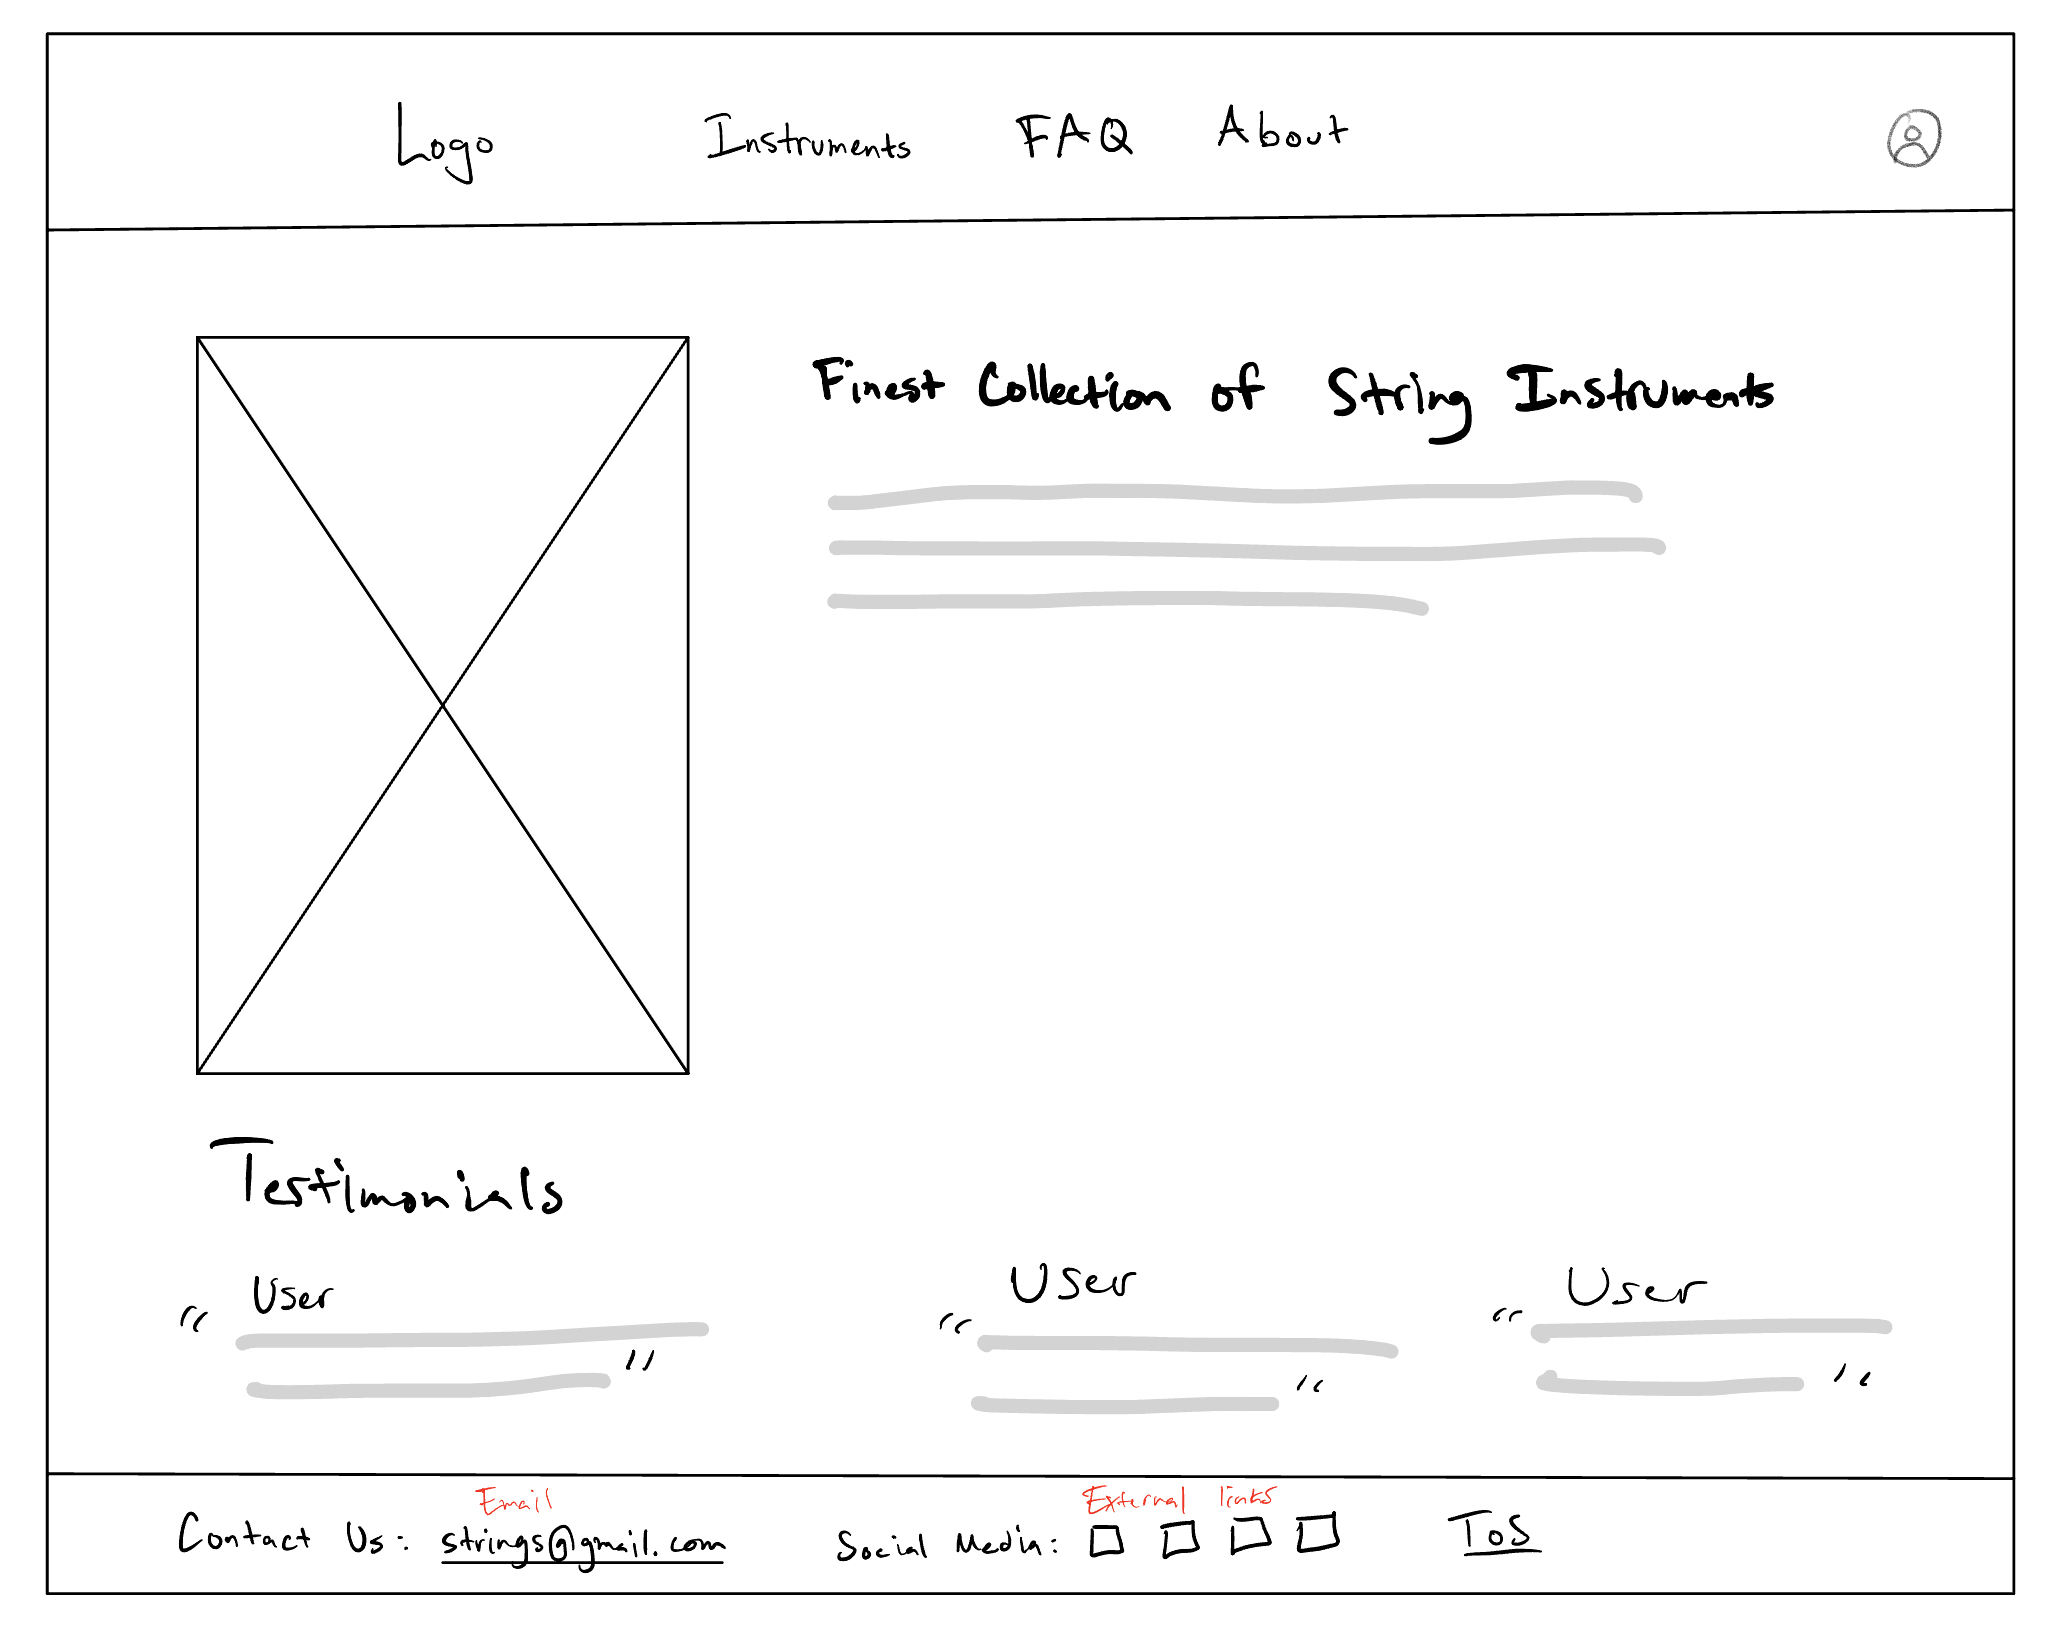 Logo Instruments FAQ About
Finest Collection of String Instruments
Testimonials
" User "
" User "
" User "
Email
Contact Us: strings@gmail.com
External links
Social Media:
ToS